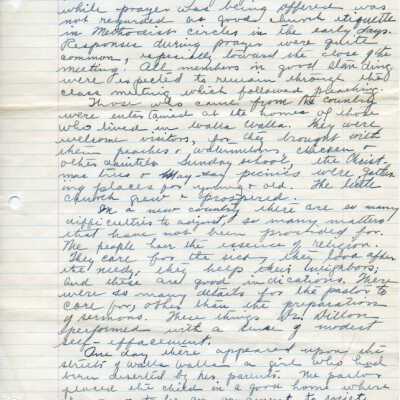 while prayer was being offered was
not regarded as good church etiquette
in Methodist circles in the early days.
Responses during prayer were quite
common, especially toward the close of the
meeting. All members in good standing
were expected to remain through the
class meeting which followed preaching.
Those who came from the country
were entertained at the homes of those
who lived in Walla Walla. They were
welcome visitors, for they brought with
them peaches, watermelons, chicken &
other dainties. Sunday school, the Christ-
mas tree & May-day picnics were gather-
ing places for young & old. The little
church grew & prospered.
In a new country there are so many
difficulties to adjust, so many matters
that have not been provided for.
The people have the essence of religion.
They care for the sick, they look after
the needy, they help their neighbors,
and these are good indications. There
were so many details for the pastor to
care for, other than the preparations
of sermons. These things Dr. Dillon
performed with a sense of modest
self-effacement.
One day there appeared upon the
streets of Walla Walla a girl who had
been deserted by her parents. The pastor
placed the child in a good home where
to society